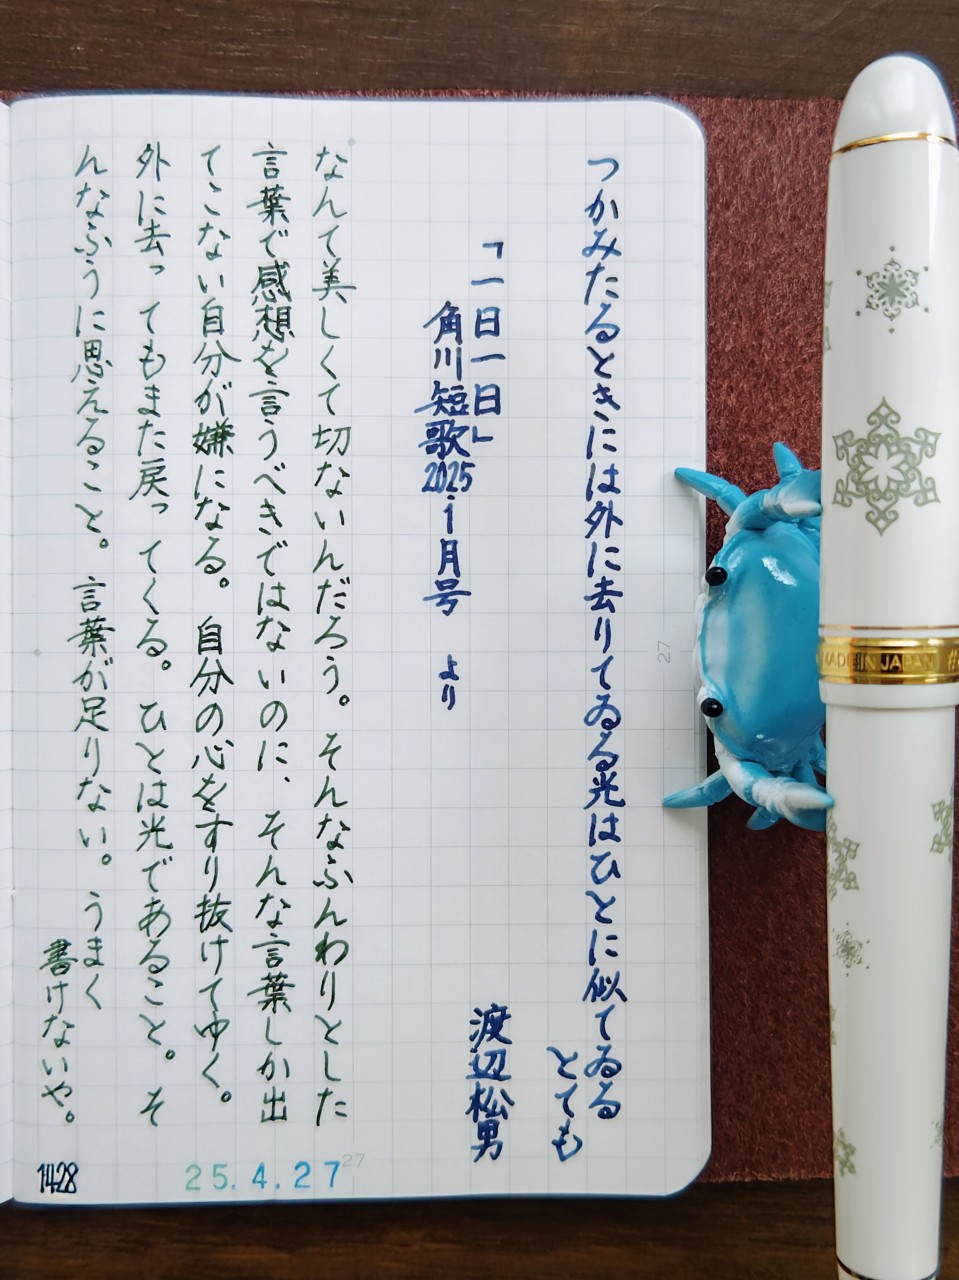 つかみたるときには外に去りてゐる光はひとに似てゐる
とても
渡辺松男
「一日一日」
角川短歌2025.1月号 より
なんて美しくて切ないんだろう。そんなふんわりとした
言葉で感想を言うべきではないのに、そんな言葉しか出
てこない自分が嫌になる。自分の心をすり抜けてゆく。
外に去ってもまた戻ってくる。ひとは光であること。そ
んなふうに思えること。言葉が足りない。うまく
書けないや。
1428
25.4.27
27
27
MADE IN JAPAN